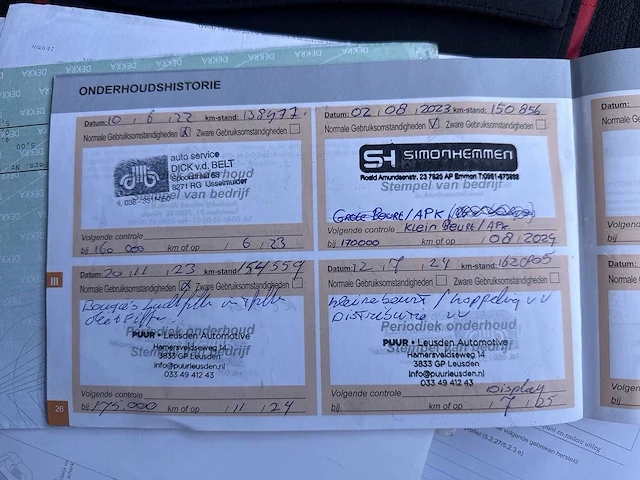 ONDERHOUDSHISTORIE
Datum: 10 , 6 , 22 km-stand: 138977
Normale Gebruiksomstandigheden X Zware Gebruiksomstandigheden
auto service
DICK v.d. BELT
Spoorstraat 63
8271 RG IJsselmuiden
Stempel van bedrijf
Volgende controle
bij 160 000 km of op , 6 , 23
Datum: 02 , 08 , 2023 km-stand: 150 856
Normale Gebruiksomstandigheden V Zware Gebruiksomstandigheden
SH SIMONHEMMEN
Roald Amundsenstr. 23 7825 AP Emmen T.0591-675899
Stempel van bedrijf
GROTE BEURT / APK
Volgende controle Klein BEURT / APK
bij 170000 km of op , 08 , 2024
III
Datum: 20 , 11 , 23 km-stand: 154559
Normale Gebruiksomstandigheden X Zware Gebruiksomstandigheden
Bougies luchtfilter
Periodiek onderhoud
Stempel van bedrijf
PUUR + Leusden Automotive
Hamersveldseweg 14
3833 GP Leusden
info@puurleusden.nl
033 49 412 43
Volgende controle
bij 175.000 km of op , 11 , 24
Datum: 12 , 7 , 24 km-stand: 162005
Normale Gebruiksomstandigheden Zware Gebruiksomstandigheden
Kleine beurt / koppeling VV
Distributie VV
Periodiek onderhoud
Stempel van bedrijf
PUUR + Leusden Automotive
Hamersveldseweg 14
3833 GP Leusden
info@puurleusden.nl
033 49 412 43
Volgende controle Display
bij km of op , 7 , 25
26
Datum:
Normale G
Volgende
bij
Datum:
Normale
Volgende
bij
DEKRA DEKRA DEKRA DEKRA DEKRA